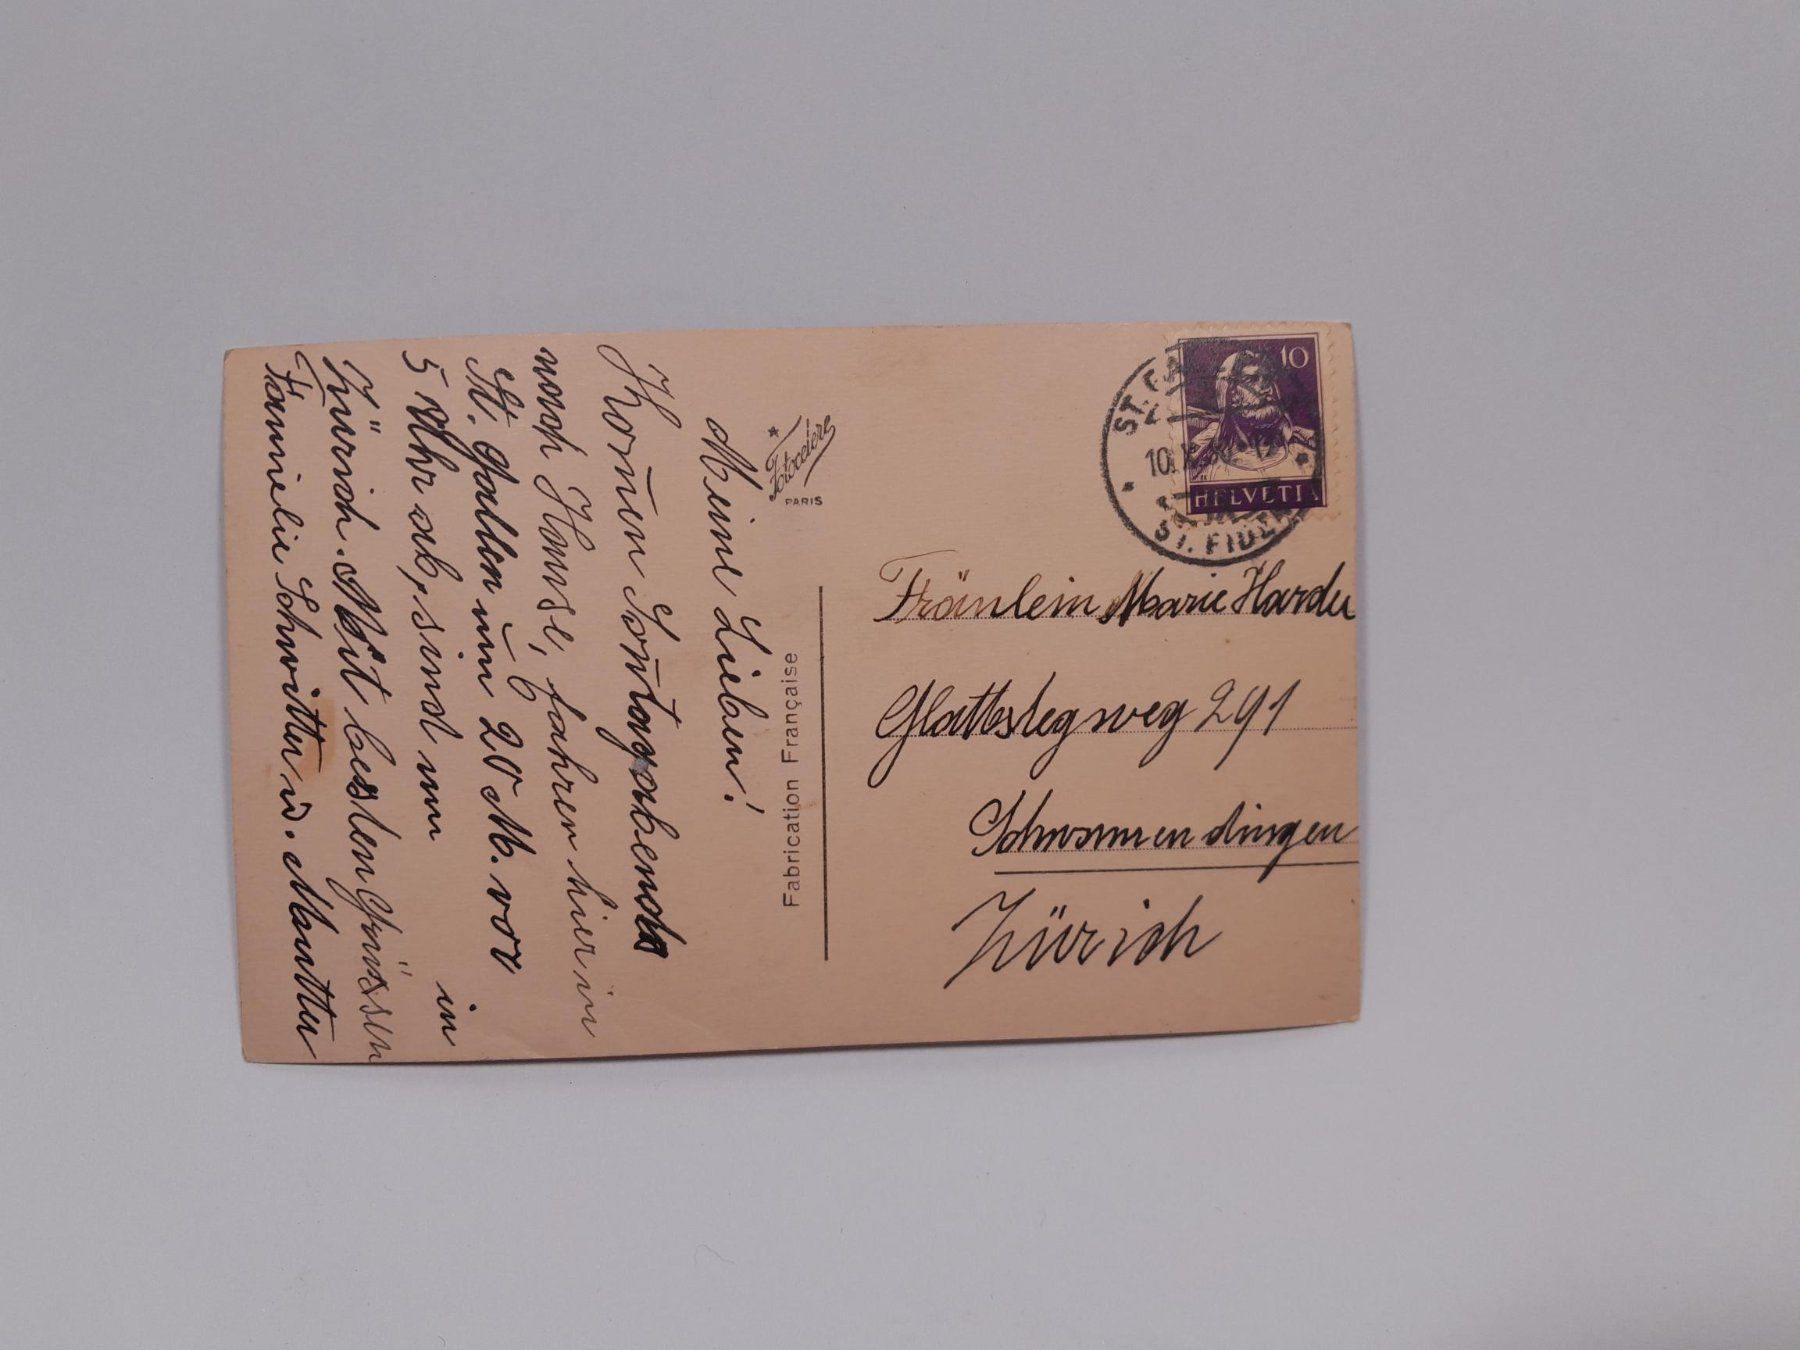 Meine Lieben!
Kom̄en Son̄tagabends
nach Hause, fahren hier in
St. Gallen um 20 M. vor
5 Uhr ab, sind um 6 in
Zürich. Mit besten Grüssen
Familie Schnitter u. Mutter
Fotocelere
PARIS
Fabrication Française
10
HELVETIA
ST. GALLEN
10. X. 30. 17
ST. FIDEN
Fräulein Marie Harder
Glattstegweg 291
Schwamendingen
Zürich